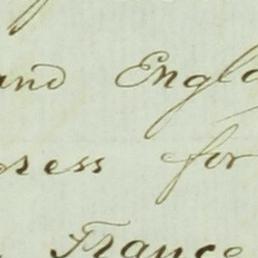 and Engla
ress for
France